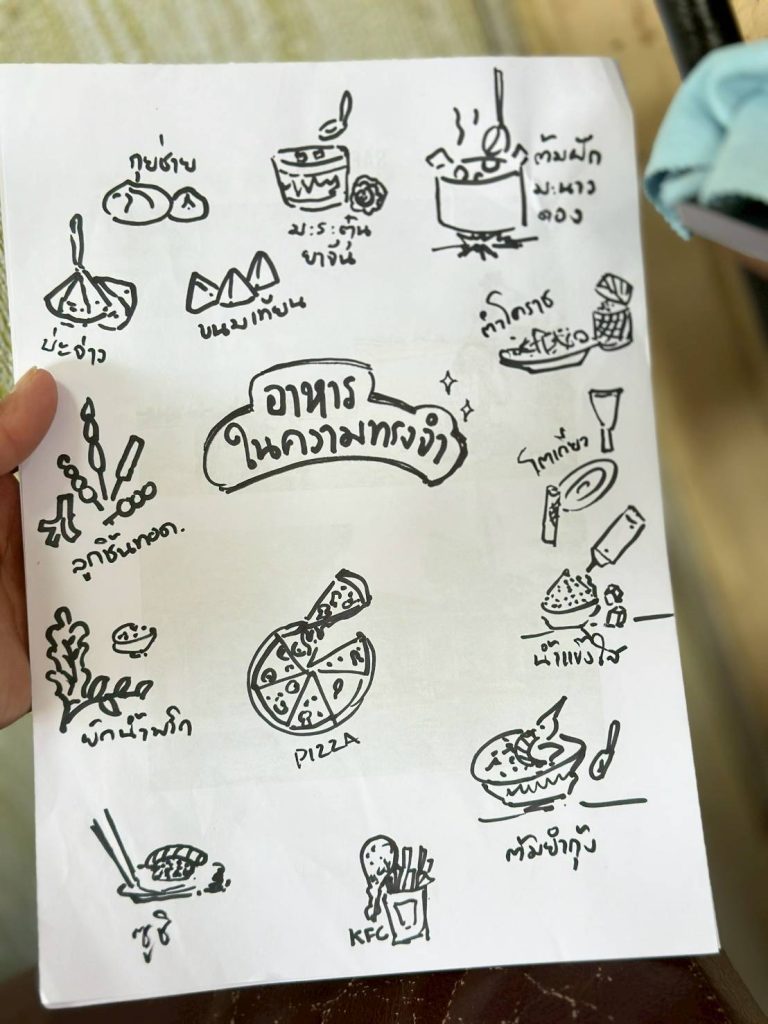 กุยช่าย
มะระตุ๋น
ยาจีน
ต้มฟัก
มะนาว
ดอง
บ๊ะจ่าง
ขนมเทียน
ตำโคราช
อาหาร
ในความทรงจำ
โตเกียว
ลูกชิ้นทอด.
น้ำแข็งใส
ผักน้ำพริก
PIZZA
ต้มยำกุ้ง
ซูชิ
KFC